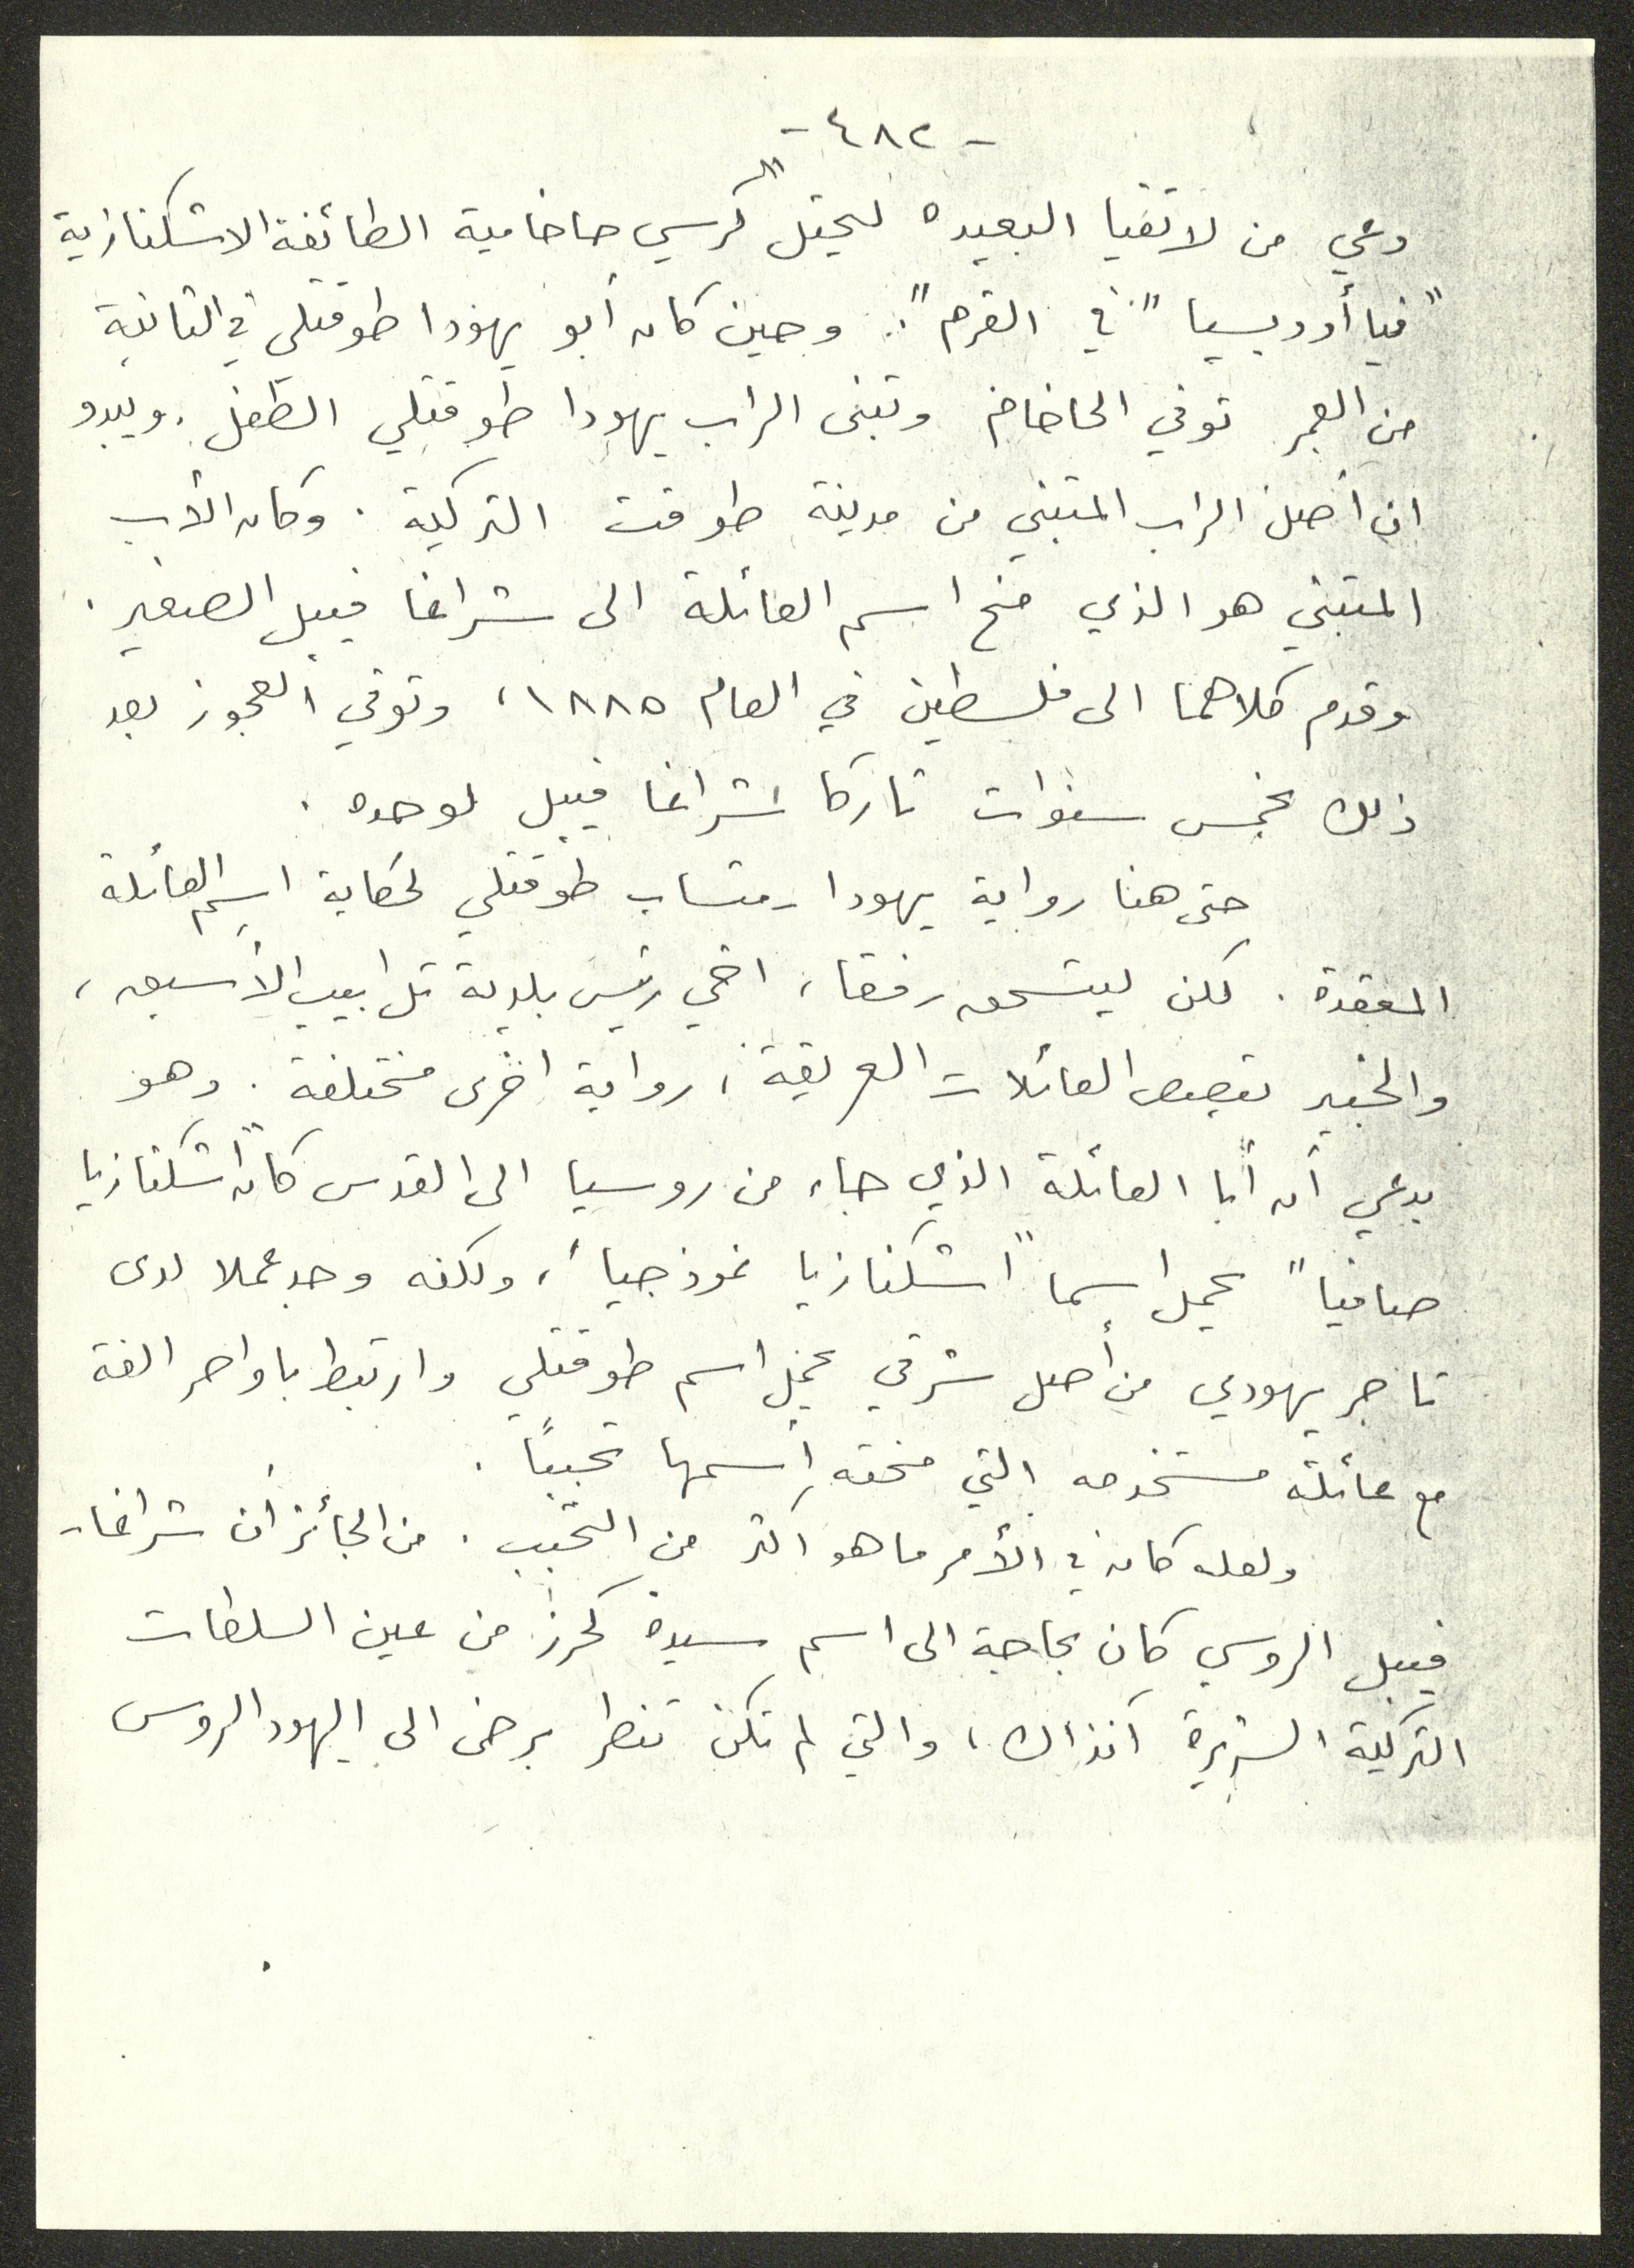 - ٤٨٢ -
دعي من لاتفيا البعيده ليحتل "كرسي حاخامية الطائفة الاشكنازية
"فيا أوديسيا" في القرم". وحين كان أبو يهودا طوقتلي في الثانية
من العمر توفي الحاخام وتبنى الراب يهودا طوقتلي الطفل. ويبدو
ان أصل الراب المتبني من مدينة طوقت التركية. وكان الأب
المتبني هو الذي منح اسم العائلة الى شراغا فيبل الصغير.
وقدم كلاهما الى فلسطين في العام ١٨٨٥، وتوفي العجوز بعد
ذلك بخمس سنوات تاركا شراغا فيبل لوحده.
حتى هنا رواية يهودا - متساب طوقتلي لحكاية اسم العائلة
المعقدة. لكن ليتسحق رفقا، اخي رئيس بلدية تل ابيب الأسبق،
والخبير بقصص العائلات العريقة، رواية اخرى مختلفة. وهو
يدعي أن أبا العائلة الذي جاء من روسيا الى القدس كان "اشكنازيا
صافيا" يحمل اسما "اشكنازيا نموذجيا"، ولكنه وجد عملا لدى
تاجر يهودي من أصل شرقي يحمل اسم طوقتلي وارتبط باواصر الفة
مع عائلة مستخدمه التي منحته إسمها تحببًا.
ولعله كان في الأمر ما هو اكثر من التحبب. من الجائز أن شراغا -
فيبل الروسي كان بحاجة الى اسم سيدة كحرز من عين السلطات
التركية الشريرة آنذاك، والتي لم تكن تنظر برضى الى اليهود الروس